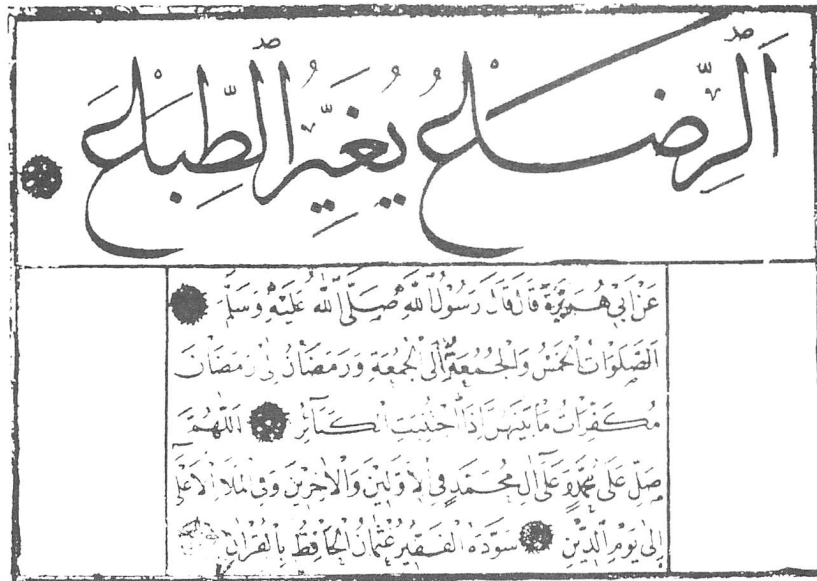 اَلرِّضَاعُ يُغَيِّرُ الطِّبَاعَ
عَنْ اَبِي هُرَيْرَةَ قَالَ قَالَ رَسُولُ اللّٰهِ صَلَّى اللّٰهُ عَلَيْهِ وَسَلَّمَ
اَلصَّلَوَاتُ الْخَمْسُ وَالْجُمُعَةُ اِلَى الْجُمُعَةِ وَرَمَضَانُ اِلٰى رَمَضَانَ
مُكَفِّرَاتُ مَا بَيْنَهُنَّ اِذَا اجْتُنِبَتِ الْكَبَآئِرُ اَللّٰهُمَّ
صَلِّ عَلٰى مُحَمَّدٍ وَعَلٰٓى اٰلِ مُحَمَّدٍ فِي الْاَوَّلِينَ وَالْاٰخِرِينَ وَفِي الْمَلَاِ الْاَعْلٰٓى
اِلٰى يَوْمِ الدِّينِ سَوَّدَهُ الْفَقِيرُ عُثْمَانُ الْحَافِظُ بِالْقُرْاٰنِ